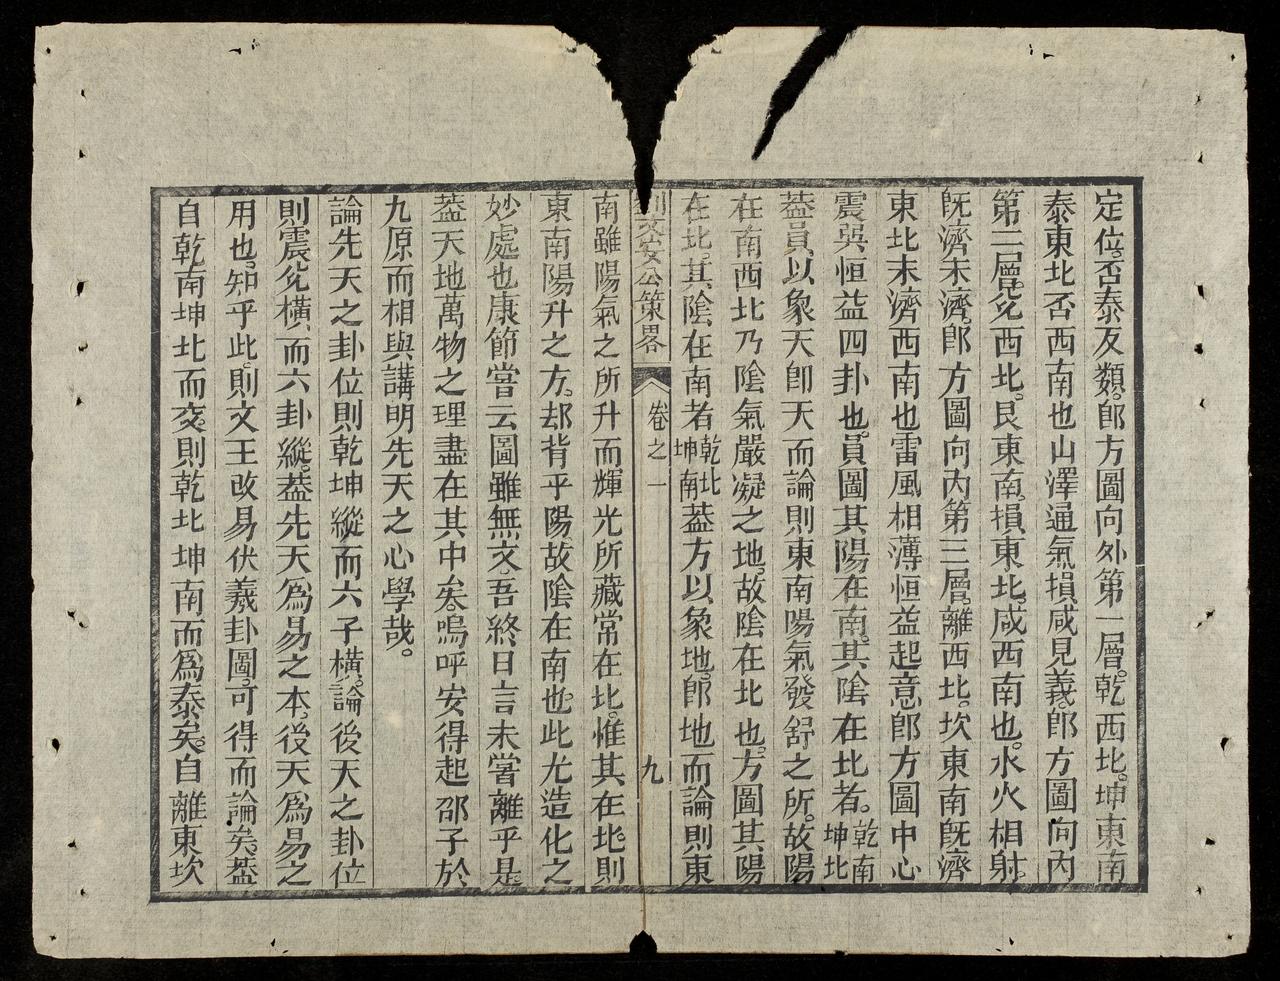 定位。否泰友類。卽方圖向外第一層。乾西北。坤東南
泰東北否西南也山澤通氣損咸見義。卽方圖向內
第二層。兌西北。艮東南。損東北。咸西南也。水火相射。
旣濟未濟。卽方圖向內第三層。離西北。坎東南旣濟
東北未濟西南也雷風相薄恒益起意卽方圖中心
震巽恒益四卦也。員圖其陽在南。其陰在北者。乾南坤北
葢員以象天卽天而論則東南陽氣發舒之所。故陽
在南西北乃陰氣嚴凝之地。故陰在北也。方圖其陽
在北。其陰在南者乾北坤南葢方以象地。卽地而論則東
文安公策畧
卷之一
九
南雖陽氣之所升而輝光所藏常在北。惟其在北。則
東南陽升之方。却背乎陽故陰在南也。此尤造化之
妙處也康節嘗云圖雖無文。吾終日言未嘗離乎是。
葢天地萬物之理盡在其中矣。嗚呼安得起邵子於
九原而相與講明先天之心學哉。
論先天之卦位則乾坤縱而六子橫。論後天之卦位
則震兌橫而六卦縱。葢先天爲易之本。後天爲易之
用也。知乎此。則文王改易伏羲卦圖。可得而論矣。葢
自乾南坤北而交。則乾北坤南而爲泰矣。自離東坎